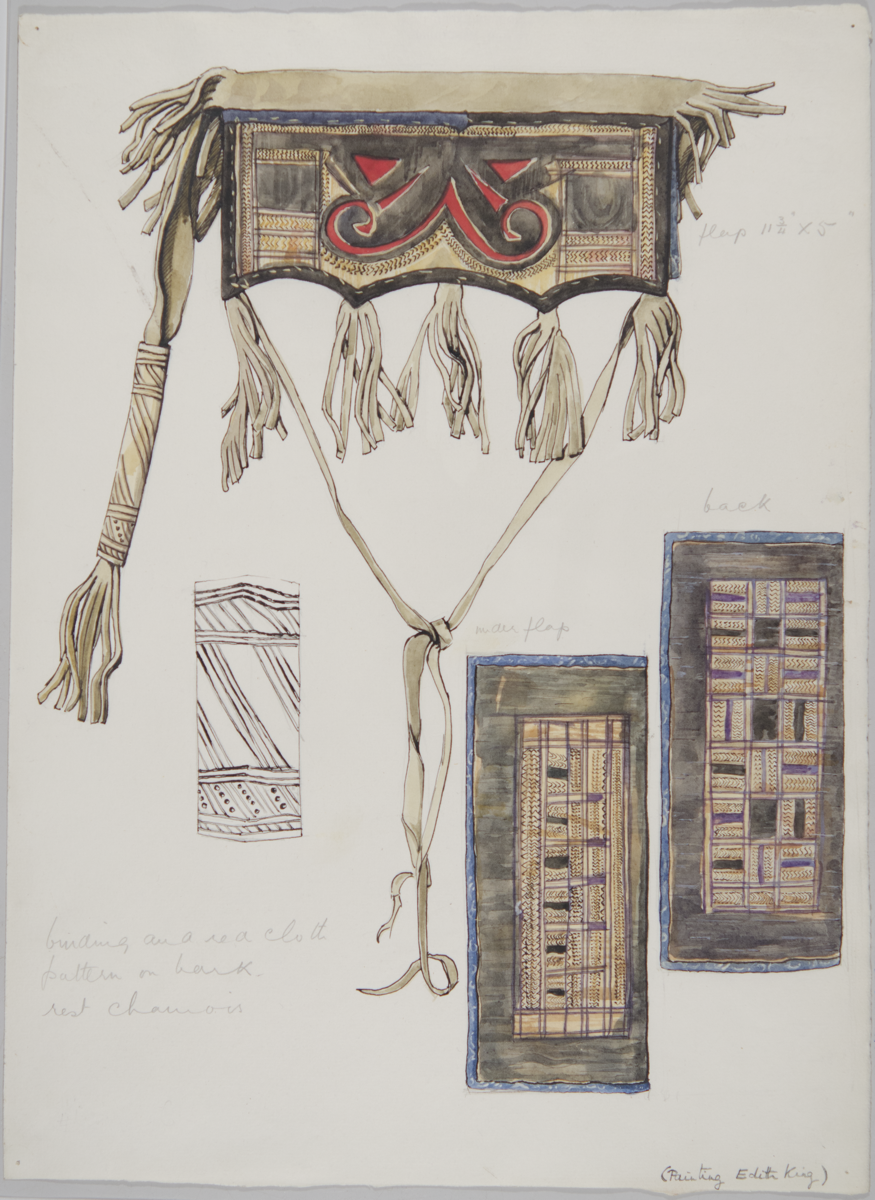 flap 11 3/4" x 5"
back
under flap
binding and red cloth
pattern on bark -
rest chamois
(Painting Edith King)